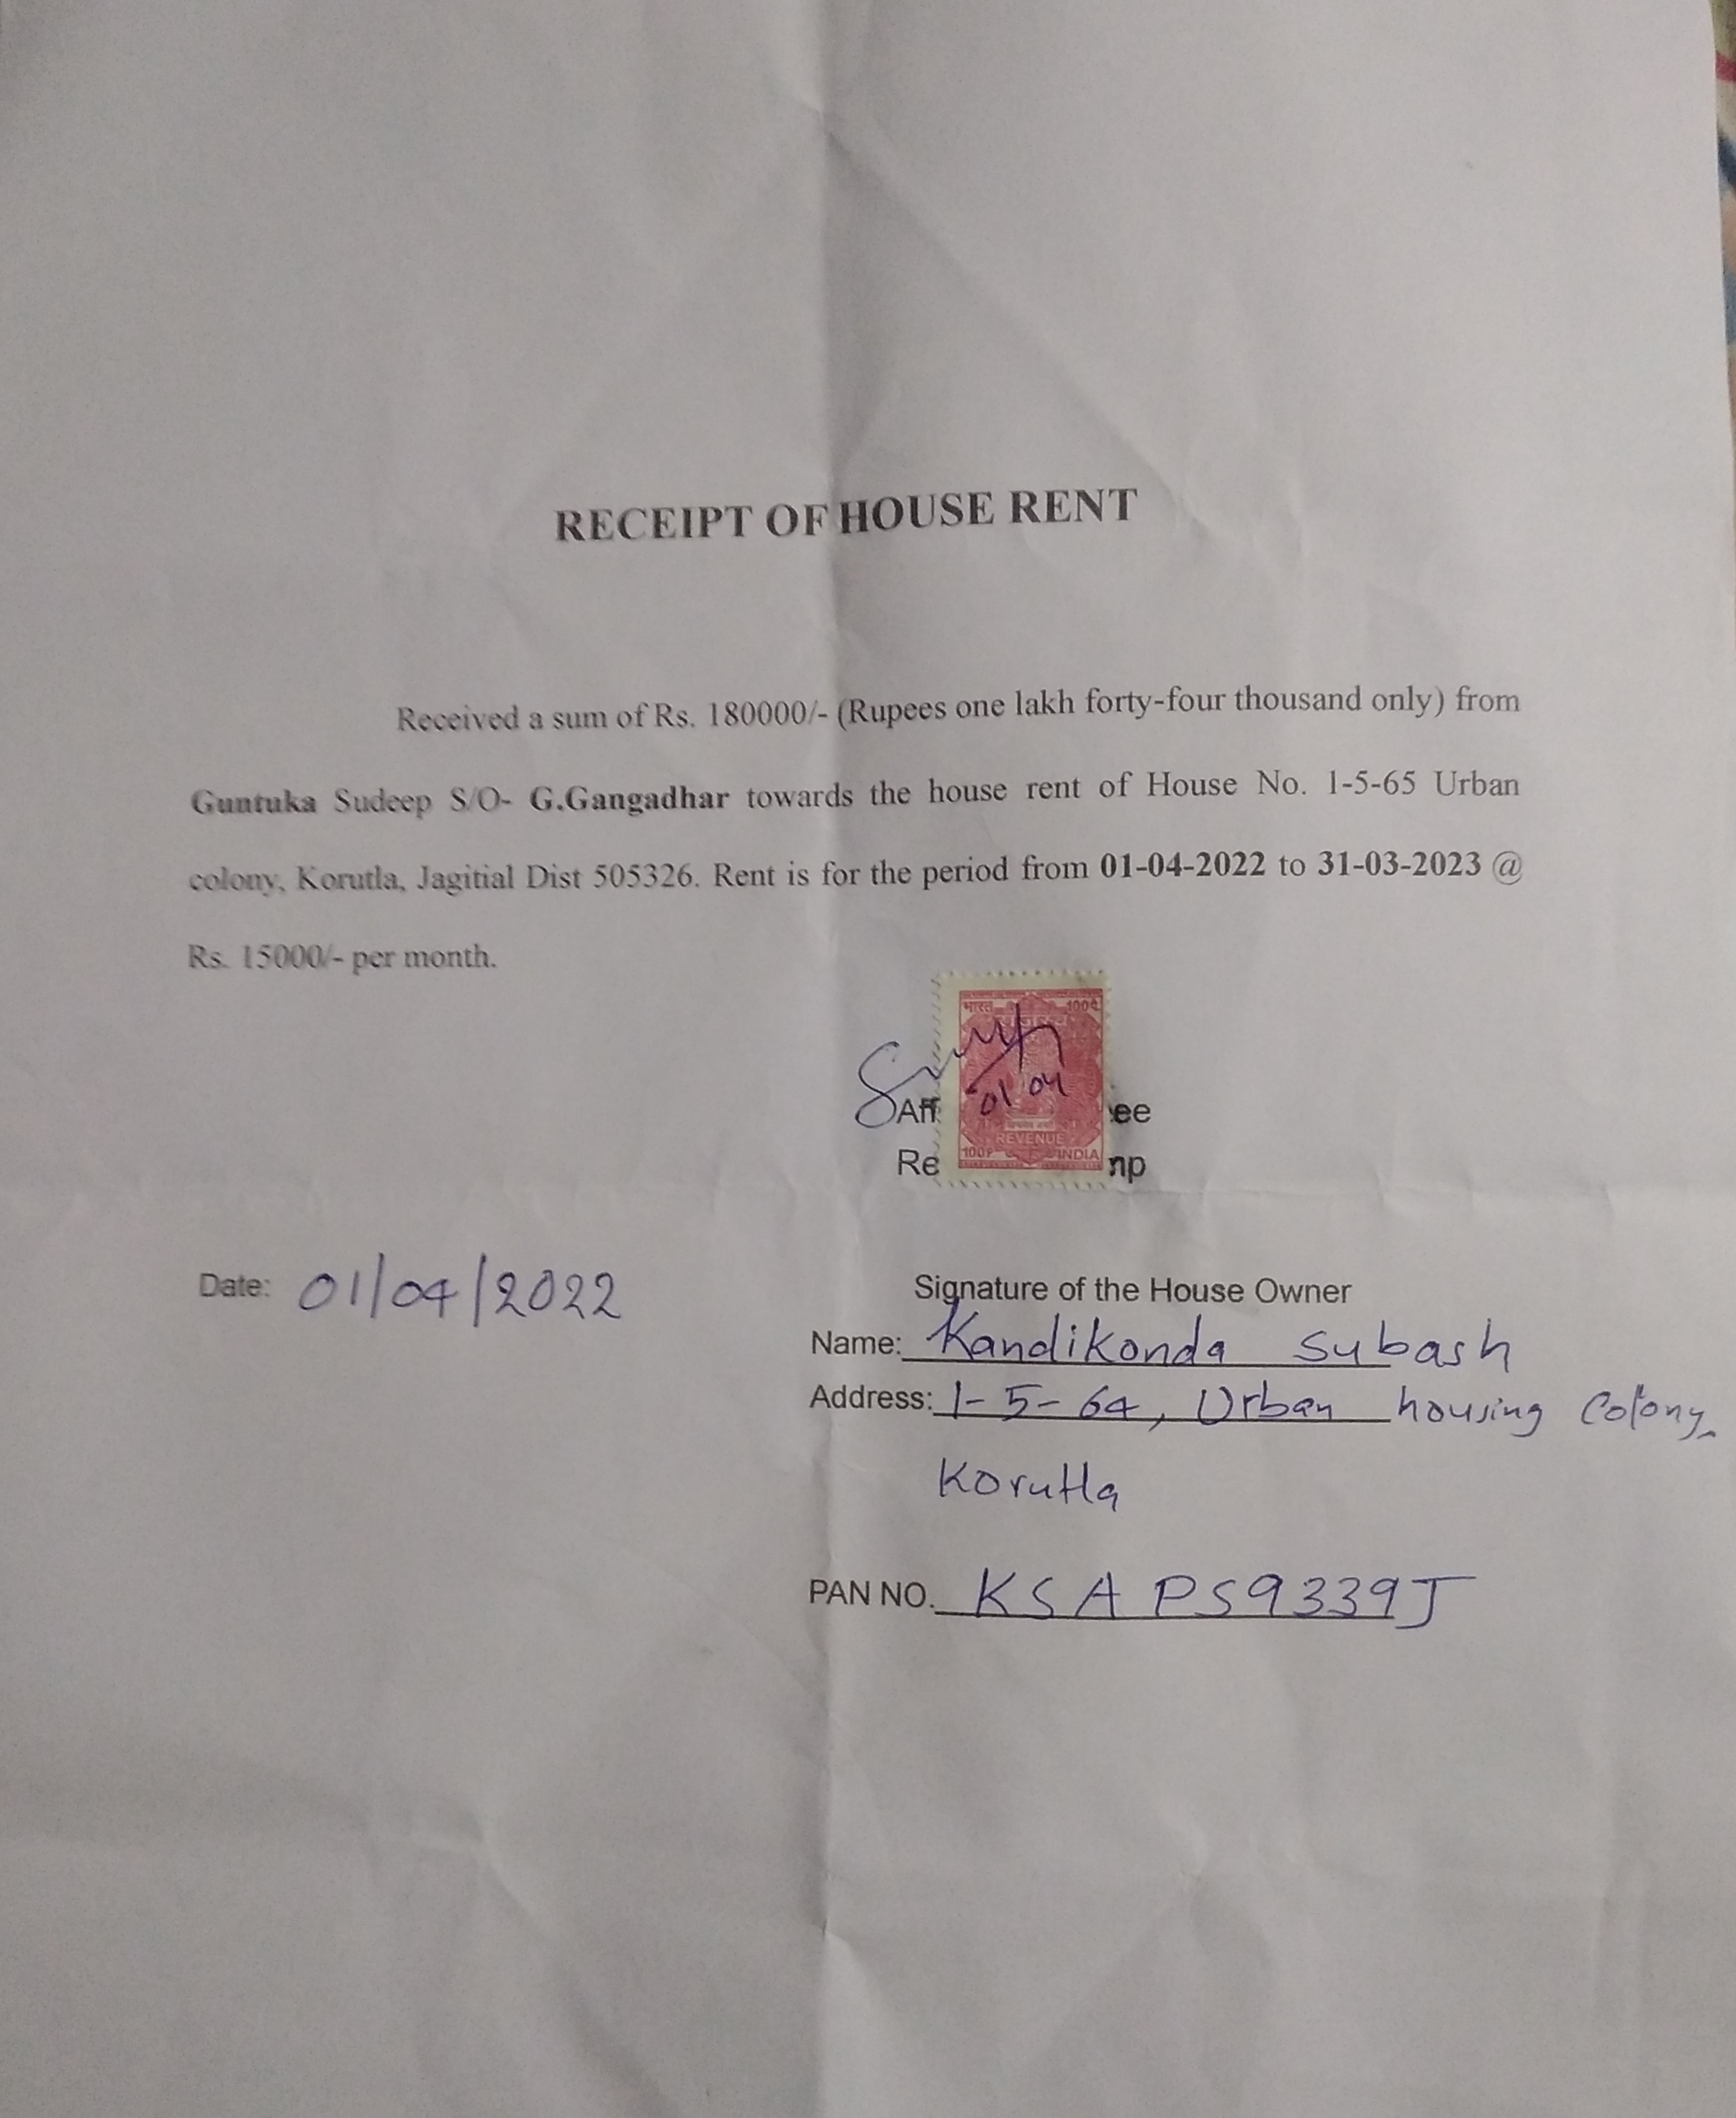 RECEIPT OF HOUSE RENT
Received a sum of Rs. 180000/- (Rupees one lakh forty-four thousand only) from
Guntuka Sudeep S/O- G.Gangadhar towards the house rent of House No. 1-5-65 Urban
colony, Korutla, Jagitial Dist 505326. Rent is for the period from 01-04-2022 to 31-03-2023 @
Rs. 15000/- per month.
भारत 100पै
01 04
Aff ee
REVENUE
100P INDIA
Re mp
Date: 01/04/2022
Signature of the House Owner
Name: Kandikonda Subash
Address: 1-5-64, Urban housing Colony
Korutla
PAN NO. KSAPS9339J